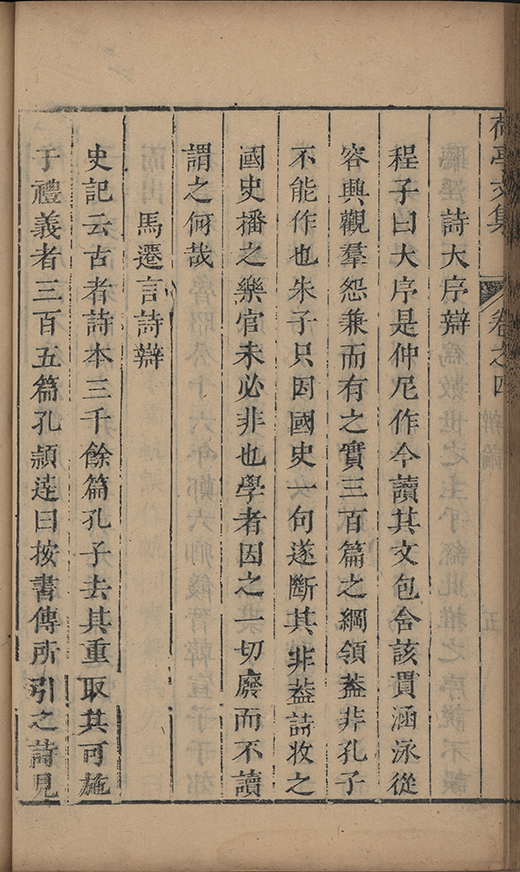 荷亭文集 卷之四
詩大序辯
程子曰大序是仲尼作今讀其文包含該貫涵泳從
容興觀羣怨兼而有之實三百篇之綱領葢非孔子
不能作也朱子只因國史一句遂斷其非葢詩牧之
國史播之樂官未必非也學者因之一切廢而不讀
謂之何哉
馬遷言詩辯
史記云古者詩本三千餘篇孔子去其重取其可施
于禮義者三百五篇孔頴逹曰按書傳所引之詩見